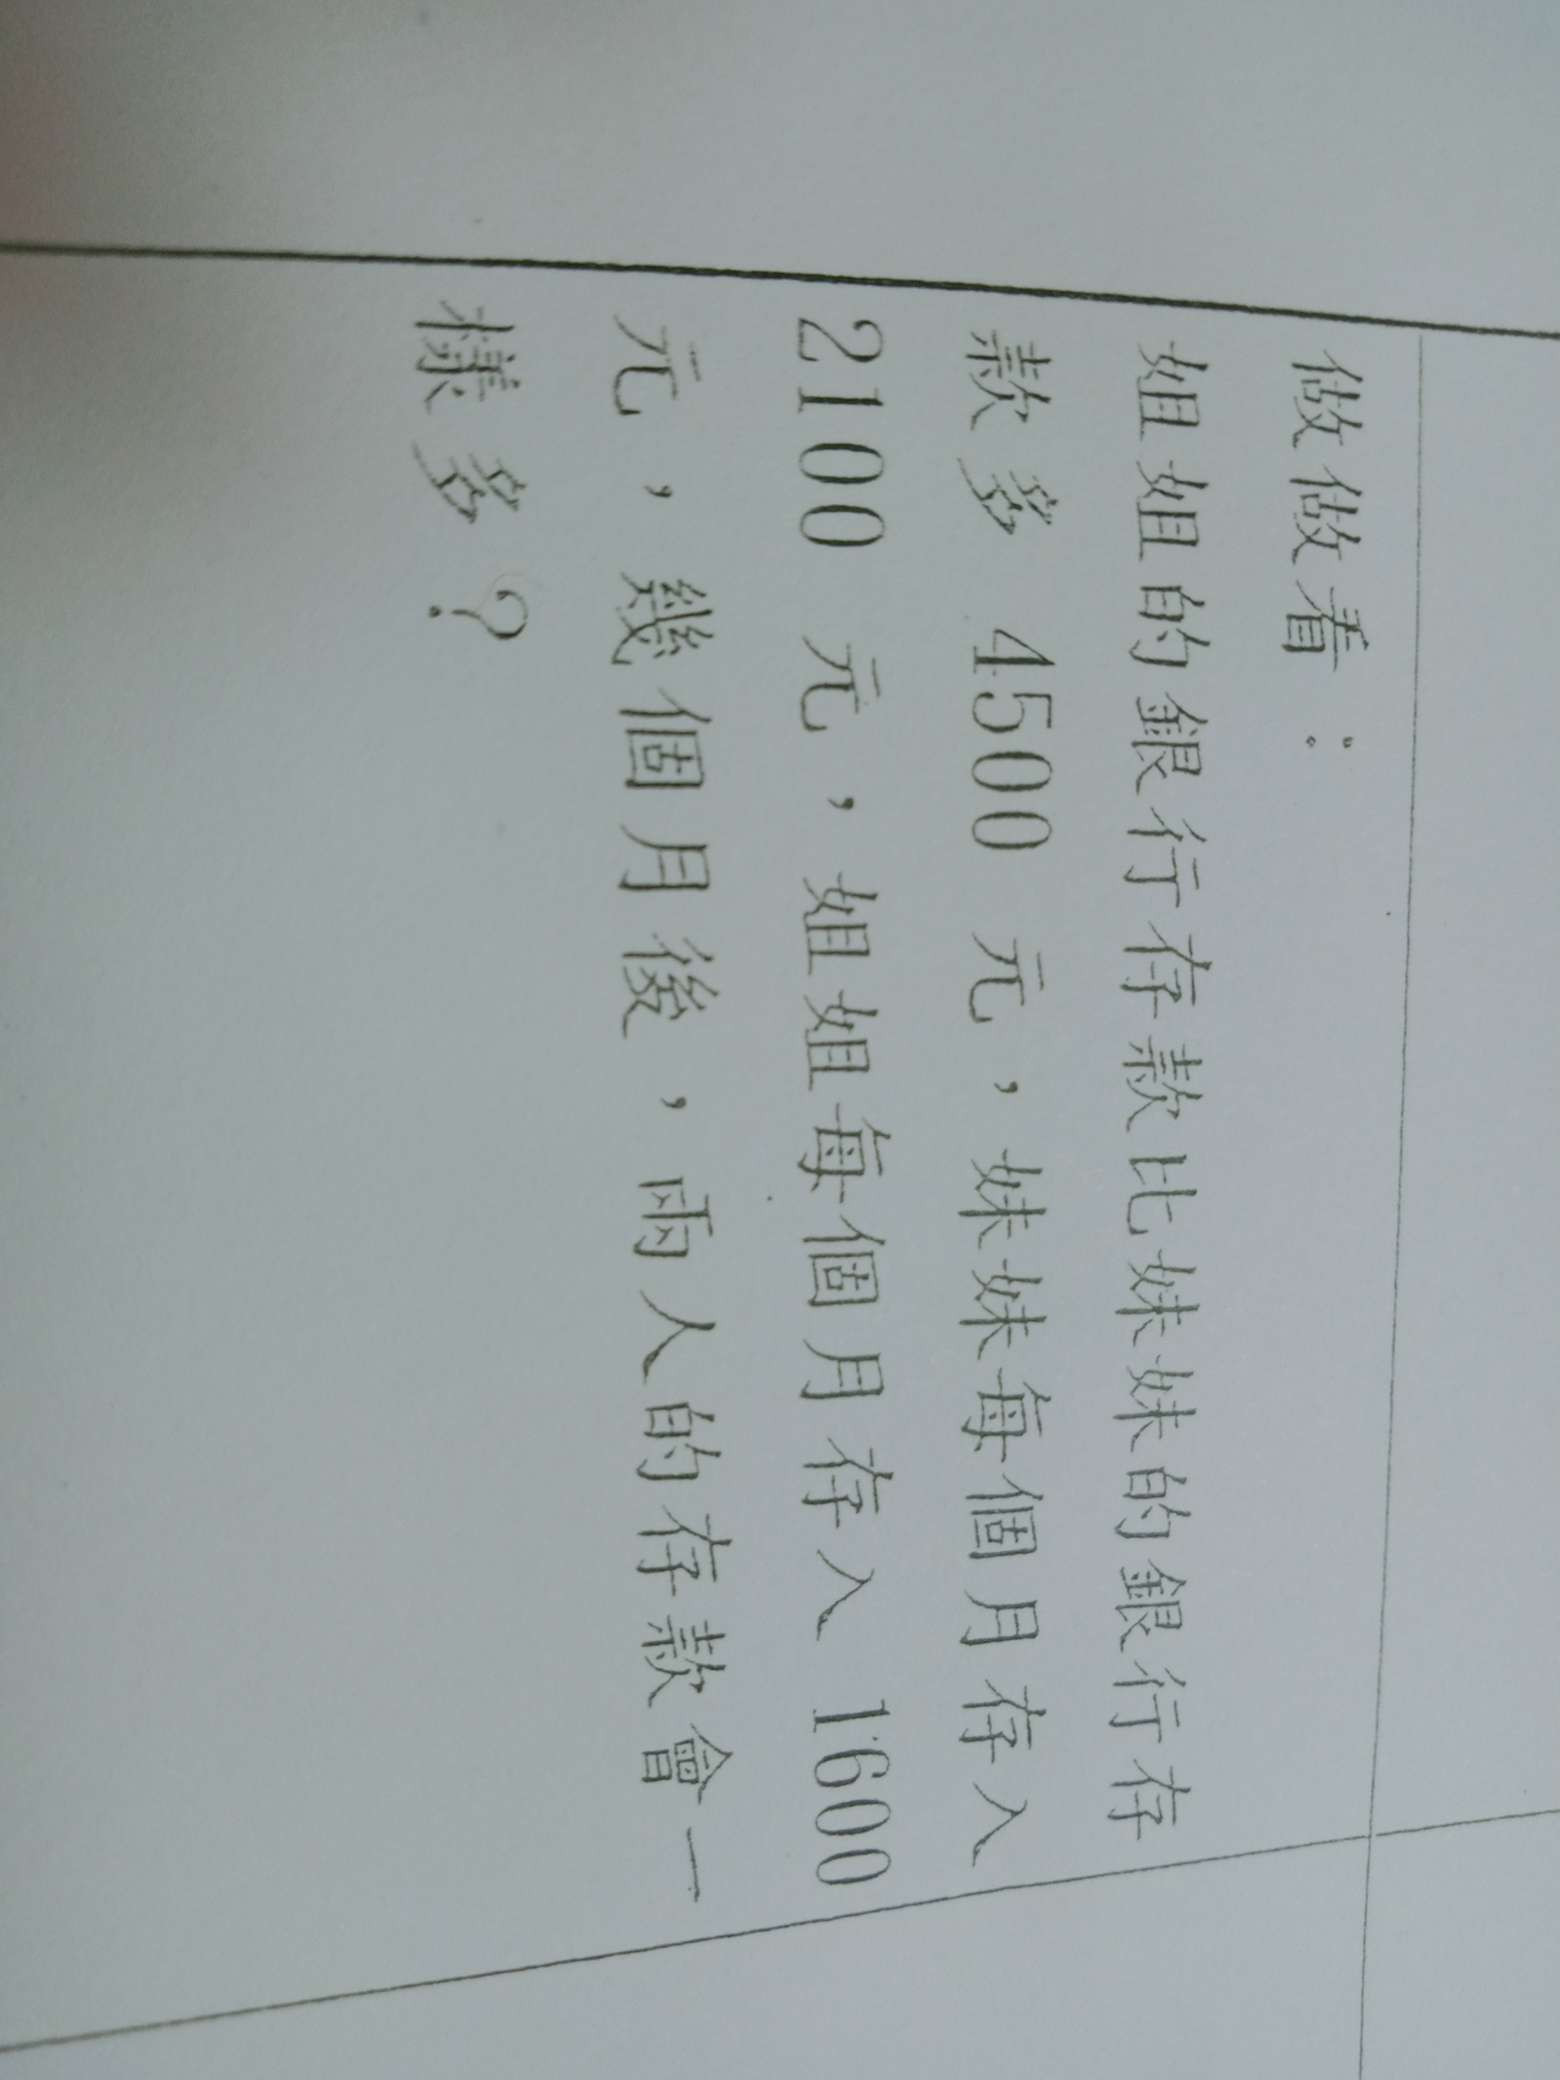 做做看：
姐姐的銀行存款比妹妹的銀行存
款多 4500 元，妹妹每個月存入
2100 元，姐姐每個月存入 1600
元，幾個月後，兩人的存款會一
樣多？